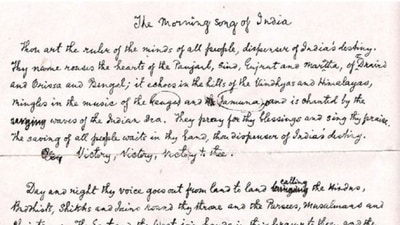 The Morning song of India
Thou art the ruler of the minds of all people, dispenser of India's destiny.
Thy name rouses the hearts of the Panjab, Sind, Gujrat and Maratha, of Dravid
and Orissa and Bengal; it echoes in the hills of the Vindhyas and Himalayas,
mingles in the music of the Ganges and Jamuna, and is chanted by the
waves of the Indian Sea. They pray for thy blessings and sing thy praise.
The saving of all people waits in thy hand, thou dispenser of India's destiny.
Victory, Victory, Victory to thee.
Day and night thy voice goes out from land to land calling the Hindus,
Budhists, Shikhs and Jains round thy throne and the Parsees, Musulmans and